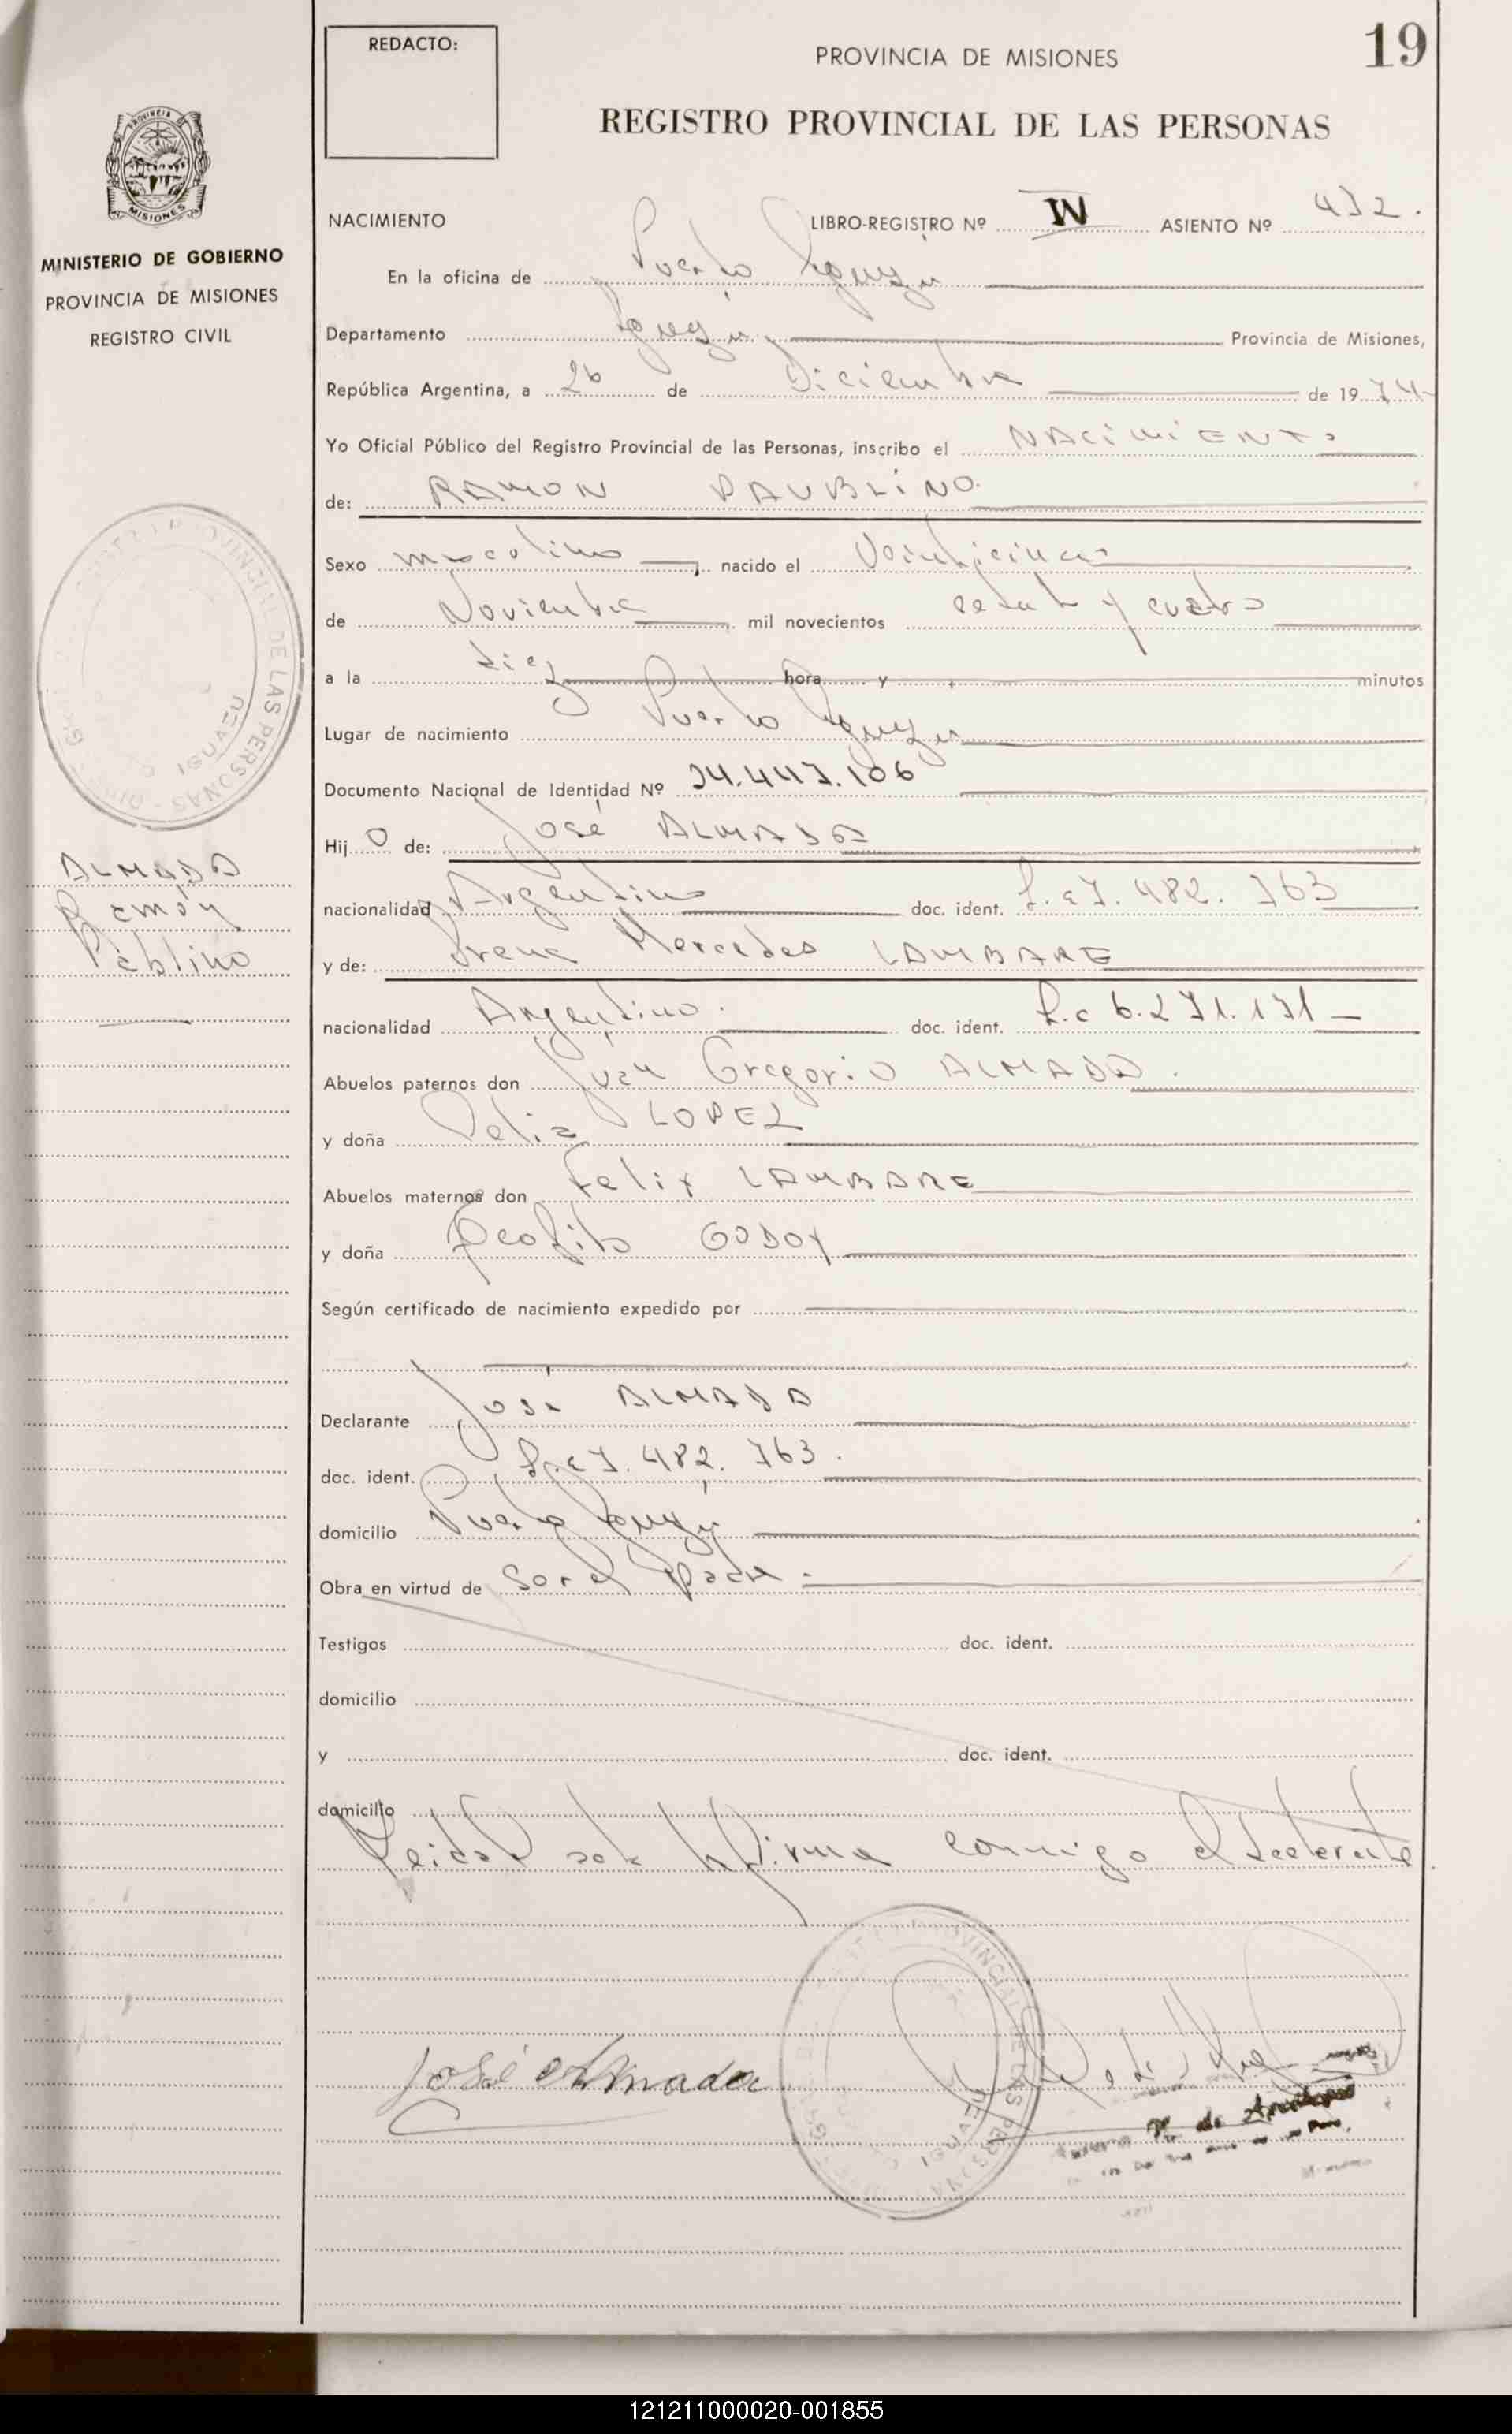 REDACTO:
PROVINCIA DE MISIONES
19
REGISTRO PROVINCIAL DE LAS PERSONAS
MISIONES
MINISTERIO DE GOBIERNO
PROVINCIA DE MISIONES
REGISTRO CIVIL
NACIMIENTO LIBRO-REGISTRO Nº IV ASIENTO Nº 432.
En la oficina de Puerto Iguazú
Departamento Iguazú Provincia de Misiones,
República Argentina, a 26 de Diciembre de 1974
Yo Oficial Público del Registro Provincial de las Personas, inscribo el NACIMIENTO
de: RAMON PAUBLINO
Sexo masculino, nacido el Veinticinco
de Noviembre mil novecientos setenta y cuatro
a la diez hora y minutos
Lugar de nacimiento Puerto Iguazú
Documento Nacional de Identidad Nº 24.447.106
Hijo de: José ALMADA
ALMADA
Ramón
Pablino
nacionalidad Argentino doc. ident. L.E 7.482.763
y de: Irene Mercedes LAMBARE
nacionalidad Argentino. doc. ident. L.C 6.271.171
Abuelos paternos don Juan Gregorio ALMADA.
y doña Delia LOPEZ
Abuelos maternos don Felix LAMBARE
y doña GODOY
Según certificado de nacimiento expedido por
Declarante José ALMADA
doc. ident. L.E 7.482.763.
domicilio Puerto Iguazú
Obra en virtud de Ser el padre.
Testigos doc. ident.
domicilio
y doc. ident.
domicilio
Leida el acta la firma conmigo el declarante.
José Almada
REGISTRO PROVINCIAL DE LAS PERSONAS
IGUAZU
121211000020-001855